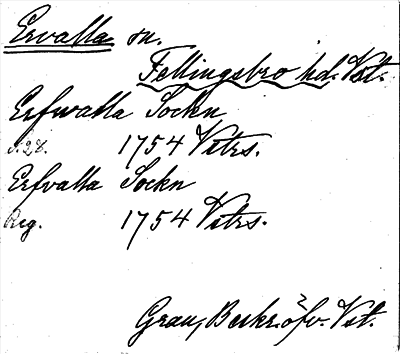 Ervalla sn.
Fellingsbro hd. Vst.
Erfwalla Sockn
S. 28. 1754 Vstrs.
Erfvalla Sockn
Reg. 1754 Vstrs.
Grau, Beskr. öfv. Vst.